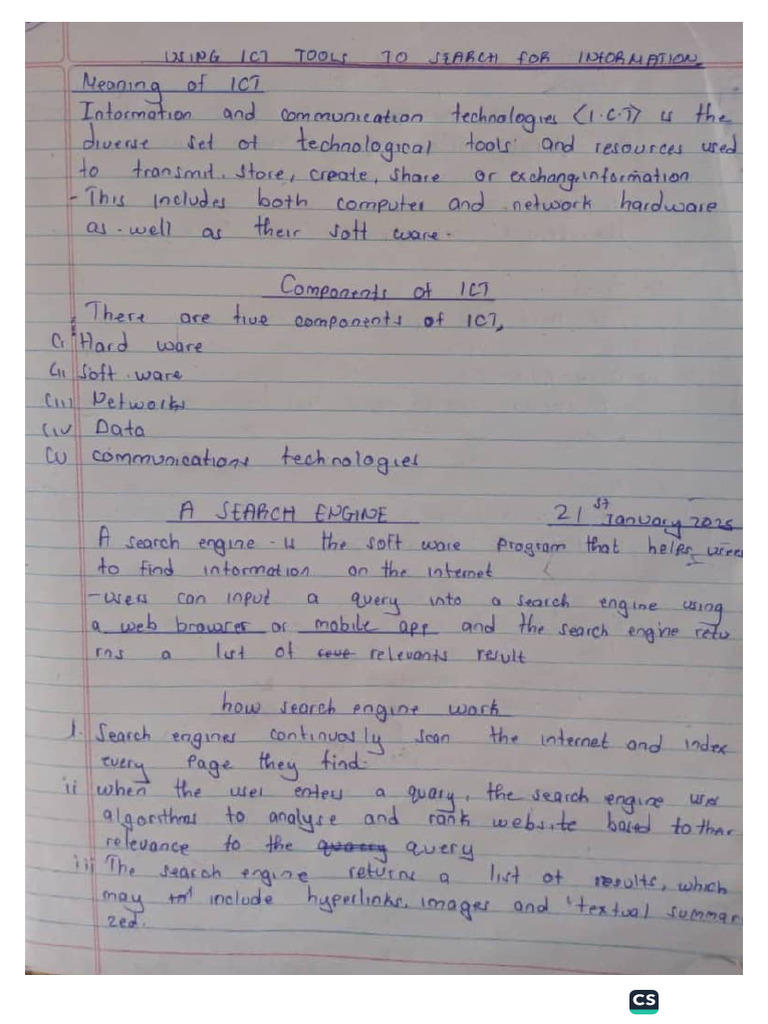 USING ICT TOOLS TO SEARCH FOR INFORMATION
Meaning of ICT
Information and communication technologies (I.C.T) is the
diverse set of technological tools and resources used
to transmit, store, create, share or exchange information
- This includes both computer and network hardware
as well as their soft ware.
Components of ICT
There are five components of ICT,
(i Hard ware
(ii Soft ware
(iii) Networks
(iv Data
(v communications technologies
A SEARCH ENGINE 21st January 2025
A search engine - is the soft ware program that helps users
to find information on the internet
- users can input a query into a search engine using
a web browser or mobile app and the search engine retu
rns a list of relevants result
how search engine work
i. Search engines continuosly scan the internet and index
every page they find.
ii when the user enters a quary, the search engine uses
algorithms to analyse and rank website based to their
relevance to the quarry query
iii The search engine returns a list of results, which
may include hyperlinks, images and textual summar
zed.
CS